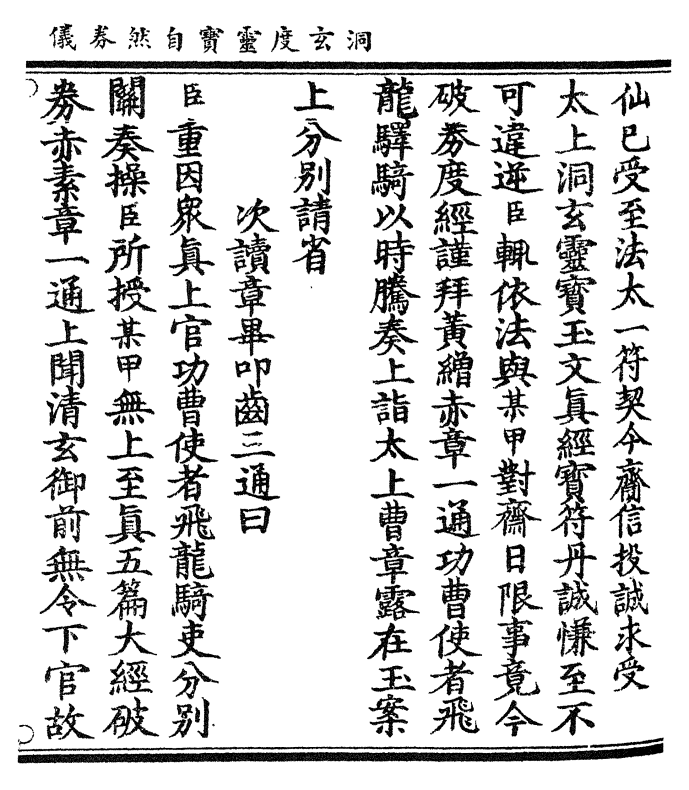 洞玄度靈寶自然券儀
仙已受至法太一符契今齎信投誠求受
太上洞玄靈寶玉文眞經寶符丹誠慊至不
可違逆臣輒依法與某甲對齋日限事竟今
破券度經謹拜黃繒赤章一通功曹使者飛
龍驛騎以時騰奏上詣太上曹章露在玉案
上分別請省
次讀章畢叩齒三通曰
臣重因眾眞上官功曹使者飛龍騎吏分別
關奏操臣所授某甲無上至眞五篇大經破
券赤素章一通上聞清玄御前無令下官故